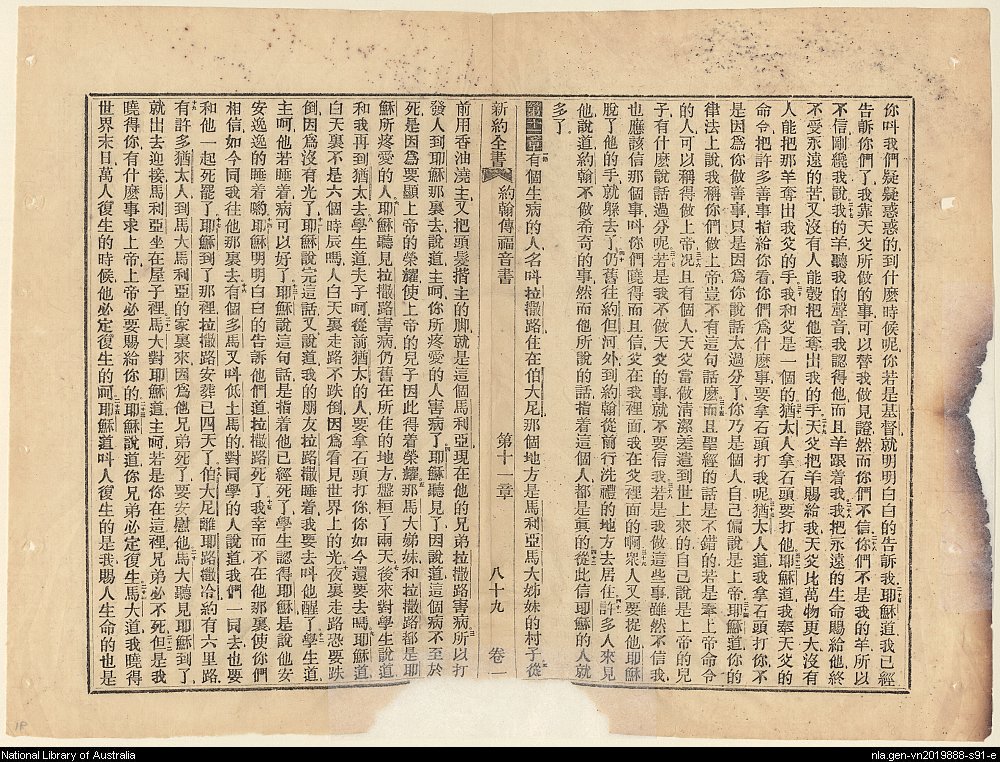 你呌我們疑疑惑惑的到什麼時候呢你若是基督就明明白白的告訴我耶穌道我已經
告訴你們了我靠天父所做的事可以替我做見證然而你們不信你們不是我的羊所以
不信剛纔我說我的羊聽我的聲音我認得他而且羊跟着我我把永遠的生命賜給他終
不受永遠的苦又沒有人能彀把他奪出我的手天父把羊賜給我天父比萬物更大沒有
人能把那羊奪出我父的手我和父是一個的猶太人拿石頭要打他耶穌道我奉天父的
命令把許多善事指給你看你們爲什麼事要拿石頭打我呢猶太人道我拿石頭打你不
是因爲你做善事只是因爲你說話太過分了你乃是個人自己偏說是上帝耶穌道你的
律法上說我稱你們做上帝豈不有這句話麼而且聖經的話是不錯的若是奉上帝命令
的人可以稱得做上帝况且有個人天父當做清潔差遣到世上來的自己說是上帝的兒
子有什麼說話過分呢若是我不做天父的事就不要信我若是我做這些事雖然不信我
也應該信那個事呌你們曉得而且信父在我裡面我在父裡面的啊衆人又要捉他耶穌
脫了他的手就躲去了仍舊往約但河外到約翰從前行洗禮的地方去居住許多人來見
他說道約翰不做希奇的事然而他所說的話指着這個人都是眞的從此信耶穌的人就
多了
第十一章有個生病的人名呌拉撒路住在伯大尼那個地方是馬利亞馬大姊妹的村子從
新約全書 約翰傳福音書 第十一章 八十九 卷一
前用香油澆主又把頭髮揩主的脚就是這個馬利亞現在他的兄弟拉撒路害病所以打
發人到耶穌那裏去說道主呵你所疼愛的人害病了耶穌聽見了因說道這個病不至於
死是因爲要顯上帝的榮耀使上帝的兒子因此得着榮耀那馬大姊妹和拉撒路都是耶
穌所疼愛的人耶穌聽見拉撒路害病仍舊在所住的地方盤桓了兩天後來對學生說道
和我再到猶太去學生道夫子呵從前猶太的人要拿石頭打你你如今還要去嗎耶穌道
白天裏不是六個時辰嗎人白天裏走路不跌倒因爲看見世界上的光夜裏走路恐要跌
倒因爲沒有光了耶穌說完這話又說道我的朋友拉路撒睡着我要去呌他醒了學生道
主呵他若睡着病可以好了耶穌說這句話是指着他已經死了學生認得耶穌是說他安
安逸逸的睡着喲耶穌明明白白的告訴他們道拉撒路死了我幸而不在他那裏使你們
相信如今同我往他那裏去有個多馬又呌低土馬的對同學的人說道我們一同去也要
和他一起死罷了耶穌到了那裡拉撒路安葬已四天了伯大尼離耶路撒冷約有六里路
有許多猶太人到馬大馬利亞的家裏來因爲他兄弟死了要安慰他馬大聽見耶穌到了
就出去迎接馬利亞坐在屋子裡馬大對耶穌道主呵若是你在這裡兄弟必不死但是我
曉得你有什麼事求上帝上帝必要賜給你的耶穌說道你兄弟必定復生馬大道我曉得
世界末日萬人復生的時候他必定復生的呵耶穌道呌人復生的是我賜人生命的也是
18
National Library of Australia
nla.gen-vn2019888-s91-e